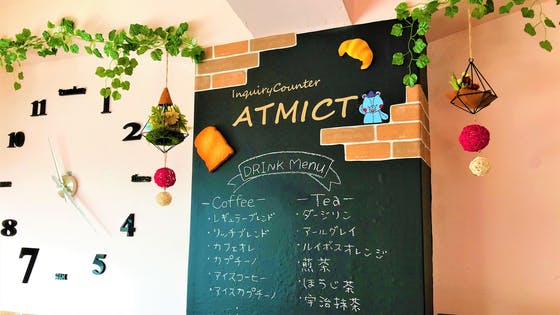 11
2
10
8
4
7
5
InquiryCounter
ATMICT
DRINK Menu
-Coffee-
・レギュラーブレンド
・リッチブレンド
・カフェオレ
・カプチーノ
・アイスコーヒー
・アイスカプチーノ
-Tea-
・ダージリン
・アールグレイ
・ルイボスオレンジ
・煎茶
・ほうじ茶
・宇治抹茶